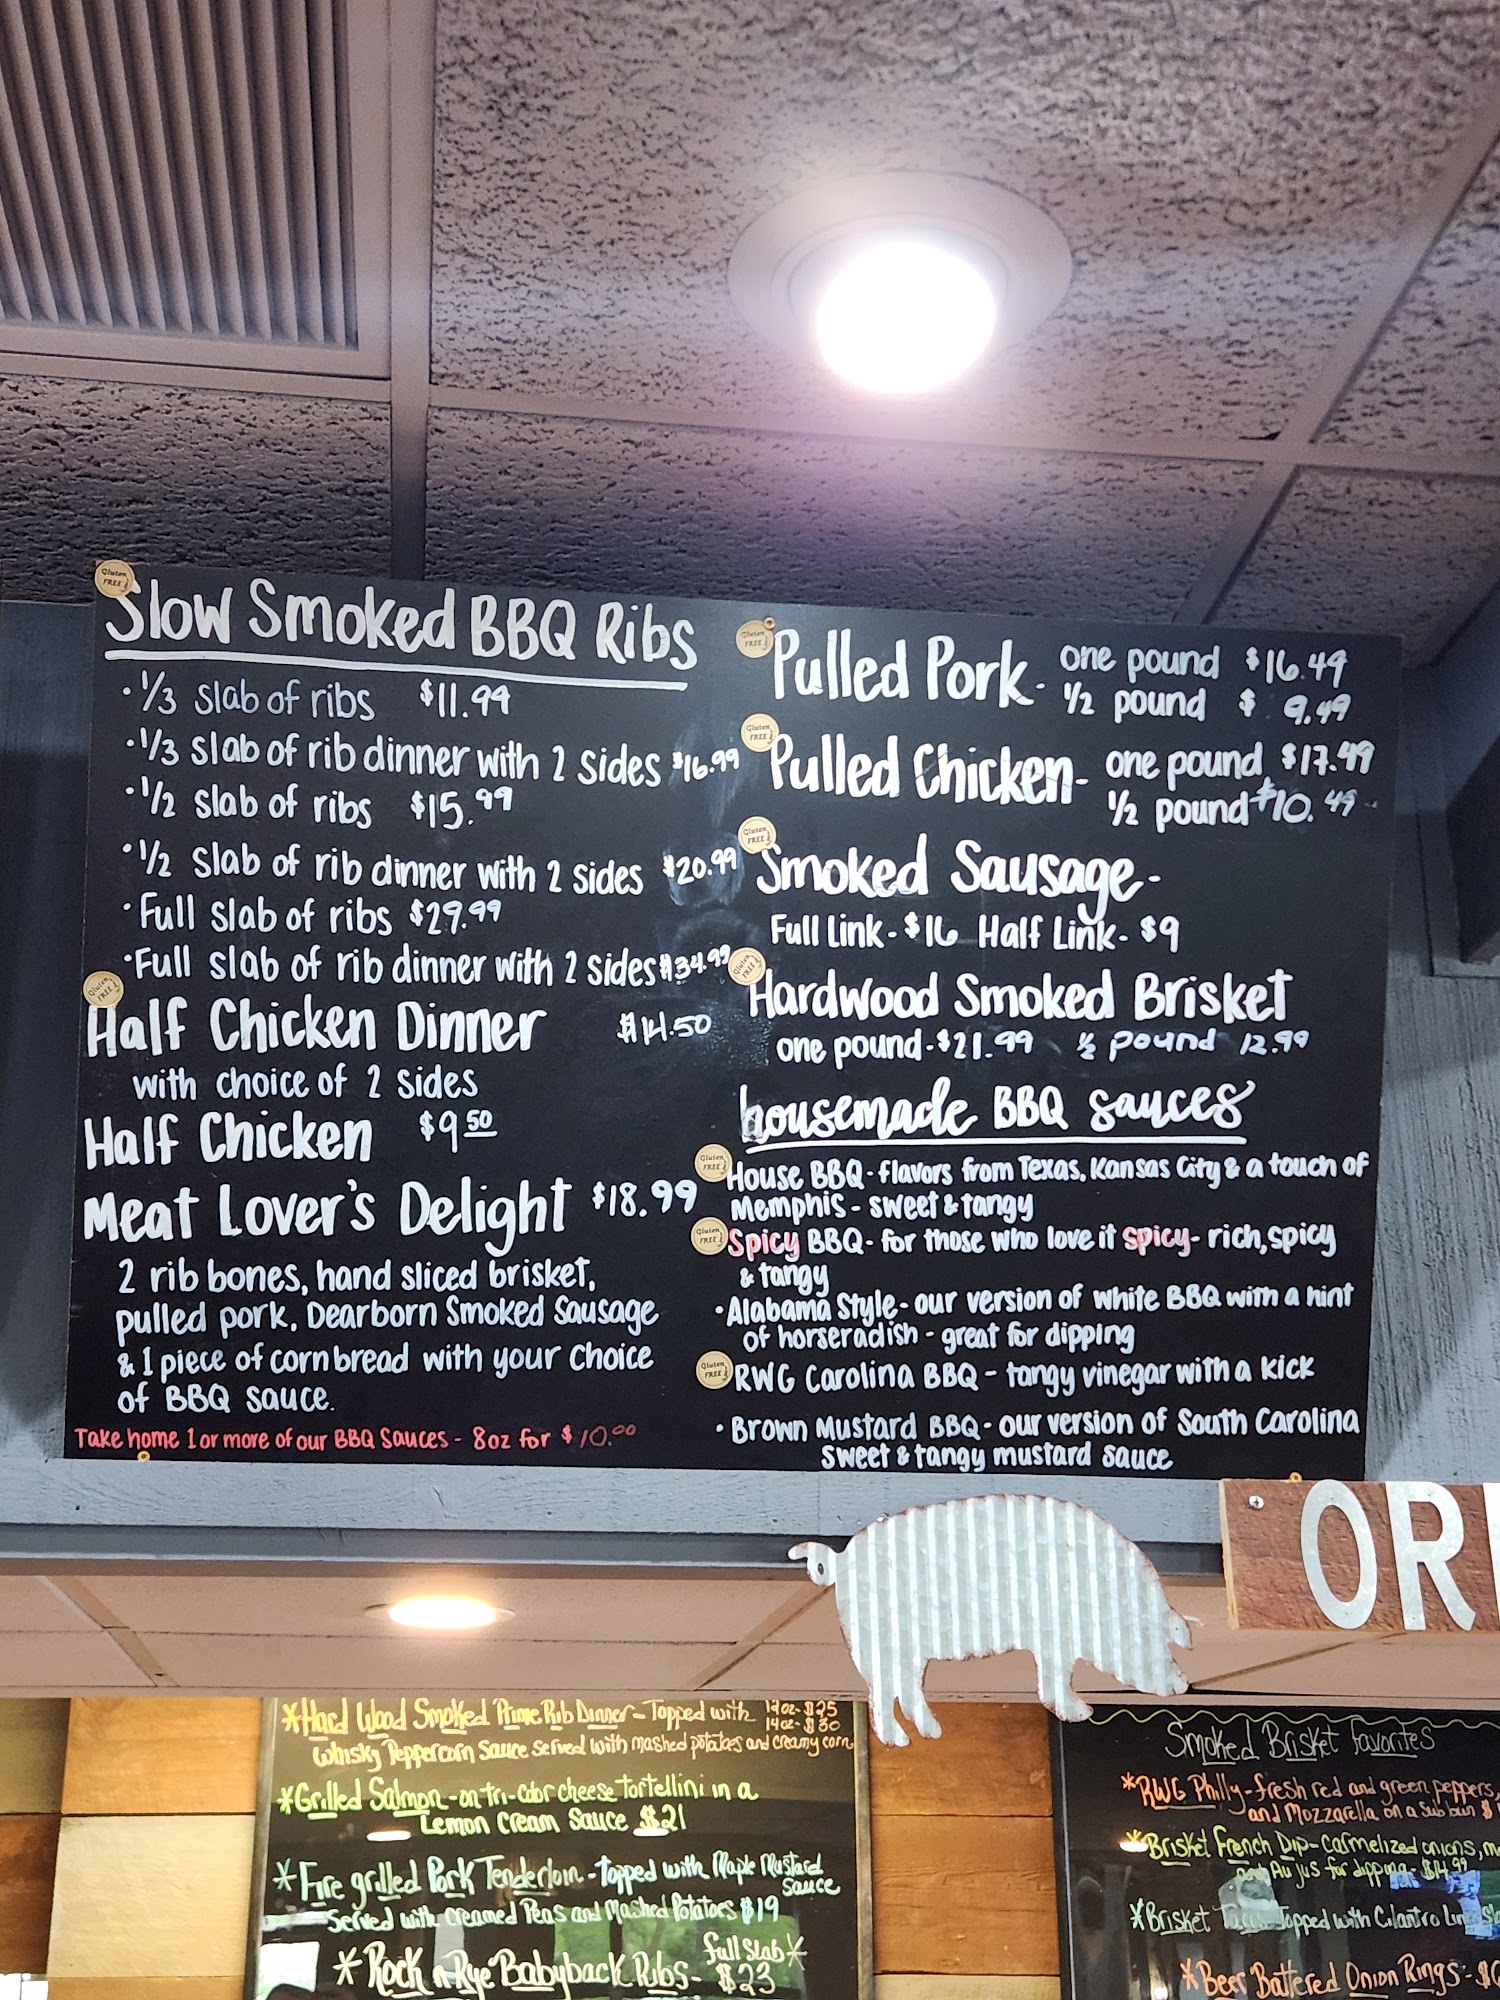 Gluten FREE
Slow Smoked BBQ Ribs
· 1/3 slab of ribs $11.99
· 1/3 slab of rib dinner with 2 sides $16.99
· 1/2 slab of ribs $15.99
· 1/2 slab of rib dinner with 2 sides $20.99
· Full slab of ribs $29.99
· Full slab of rib dinner with 2 sides $34.99
Gluten FREE
Half Chicken Dinner $14.50
with choice of 2 sides
Half Chicken $9 50
Meat Lover's Delight $18.99
2 rib bones, hand sliced brisket,
pulled pork, Dearborn Smoked Sausage
& 1 piece of cornbread with your choice
of BBQ sauce.
Take home 1 or more of our BBQ Sauces - 8oz for $10.00
Gluten FREE
Pulled Pork - one pound $16.49
1/2 pound $ 9.49
Gluten FREE
Pulled Chicken - one pound $17.49
1/2 pound $10.49
Gluten FREE
Smoked Sausage -
Full Link - $16 Half Link - $9
Gluten FREE
Hardwood Smoked Brisket
one pound - $21.99 1/2 pound 12.99
housemade BBQ sauces
Gluten FREE
House BBQ - flavors from Texas, Kansas City & a touch of
Memphis - sweet & tangy
Gluten FREE
Spicy BBQ - for those who love it spicy - rich, spicy
& tangy
· Alabama Style - our version of white BBQ with a hint
of horseradish - great for dipping
Gluten FREE
RWG Carolina BBQ - tangy vinegar with a kick
· Brown Mustard BBQ - our version of South Carolina
sweet & tangy mustard sauce
OR
*Hard Wood Smoked Prime Rib Dinner - Topped with 12oz - $25
14oz - $30
Whisky Peppercorn Sauce served with mashed potatoes and creamy corn
*Grilled Salmon - on tri-color cheese tortellini in a
Lemon Cream Sauce $21
*Fire grilled Pork Tenderloin - topped with Maple Mustard
Sauce
Served with creamed Peas and Mashed Potatoes $19
*Rock n Rye Babyback Ribs - full slab*
$23
Smoked Brisket Favorites
*RWG Philly - fresh red and green peppers,
and Mozzarella on a sub bun
*Brisket French Dip - Carmelized onions,
and Au jus for dipping - $14.99
*Brisket Topped with Cilantro
*Beer Battered Onion Rings -